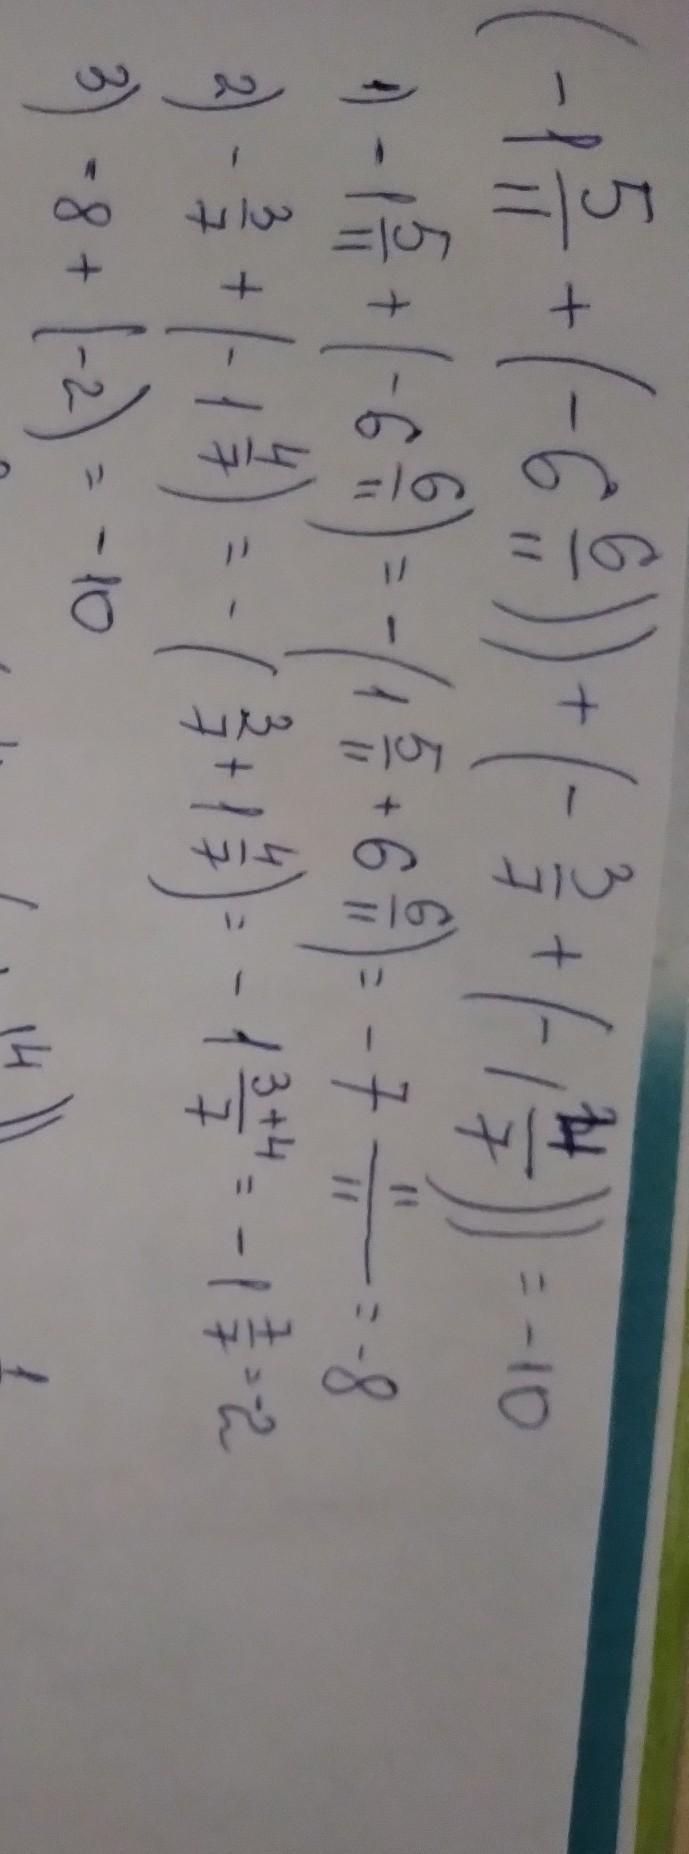 (-1 5/11 + (-6 6/11)) + (-3/7 + (-1 4/7)) = -10
1) -1 5/11 + (-6 6/11) = -(1 5/11 + 6 6/11) = -7 11/11 = -8
2) -3/7 + (-1 4/7) = -(3/7 + 1 4/7) = -1 3+4/7 = -1 7/7 = -2
3) -8 + (-2) = -10
14))